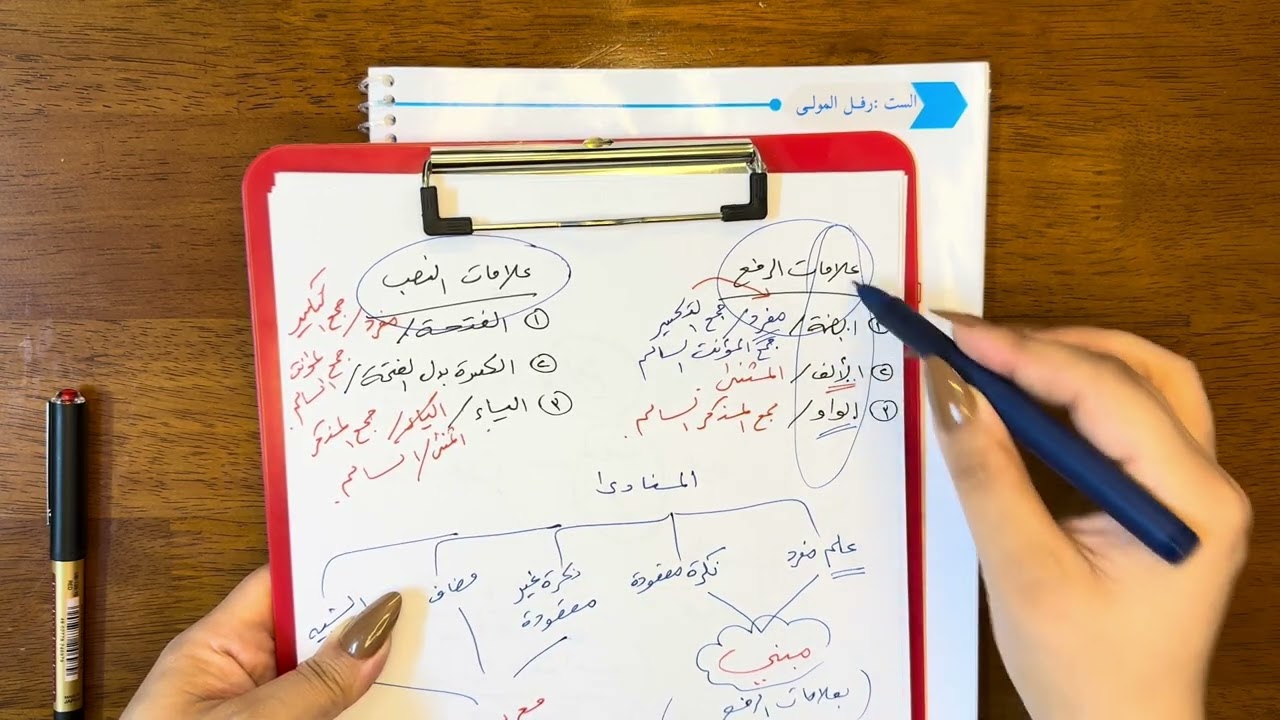 الست :رفل المولى
علامات الرفع
① الضمة/ مفرد/ جمع التكسير
جمع المؤنث السالم
② الألف/ المثنى
③ الواو/ جمع المذكر السالم.
علامات النصب
① الفتحة/ مفرد/ جمع تكسير
② الكسرة بدل الفتحة/ جمع المؤنث السالم.
③ الياء/ جمع المذكر السالم.
المثنى/
المنادى
علم مفرد
نكرة مقصودة
نكرة غير مقصودة
مضاف
الشبيه
مبني
(بعلامات الرفع)